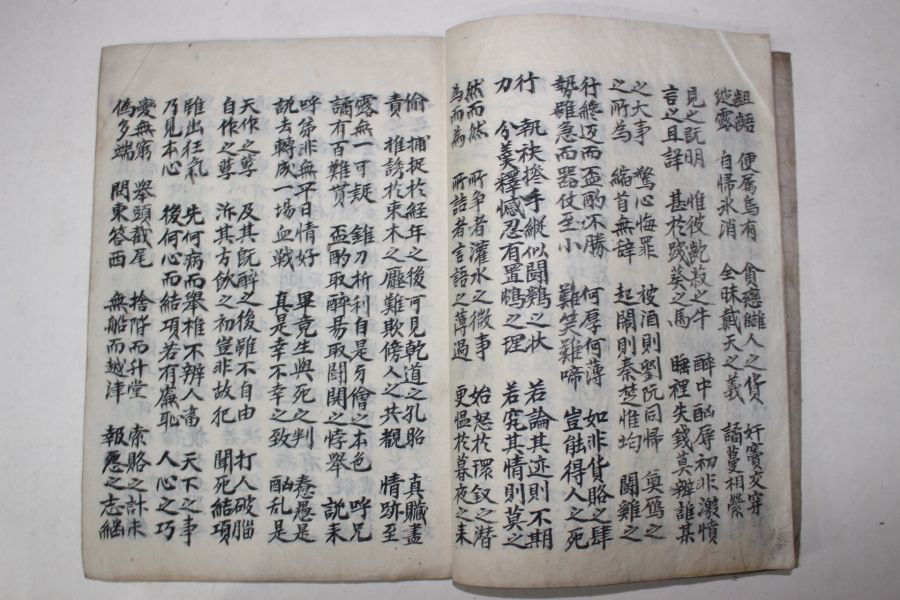 齟齬 便屬烏有 貪戀讎人之貨 奸竇交穿
綻露 自帰氷消 全昧戴天之義 譎蔓相縈
見之既明 惟彼觳觫之牛 醉中酗辱初非激憤
言之且詳 甚於踐葵之馬 睡裡失錢莫辨誰某
之大事 驚心悔罪 被酒則劉阮同帰 真僞之
之所為 縮首無辞 起鬧則秦楚惟均 鬪雞之
行終迈而盃酌不勝 何厚何薄 如非貨賂之肆
勢雖急而器仗至小 難笑難啼 豈能得人之死
行 執袂挽手縱似鬪鷄之状 若論其迹則不期
力 分羹釋憾忍有置鴆之理 若究其情則莫之
然而然 所爭者灌水之微事 始怒於環釵之潜
為而為 所詰者言語之薄過 更慍於暮夜之来
偷 捕捉於経年之後可見乾道之孔昭 真贓盡
責 推誘於束木之壓難欺傍人之共觀 情跡至
露無一可疑 錐刀析利自是牙儈之本色 呼兄
譎有百難貰 盃酌取醉易取鬪鬨之悖舉 訛来
呼弟非無平日情好 畢竟生與死之判 惷愚是
訛去轉成一場血戦 真是幸不幸之致 酗乱是
天作之孽 及其既醉之後雖不自由 打人破腦
自作之孽 泝其方飲之初豈非故犯 聞死結項
雖出狂氣 先何病而舉椎不辨人畜 天下之事
乃見本心 後何心而結項若有廉恥 人心之巧
變無窮 舉頭截尾 捨階而升堂 索賂之計未
僞多端 問東答西 無船而越津 報怨之志継